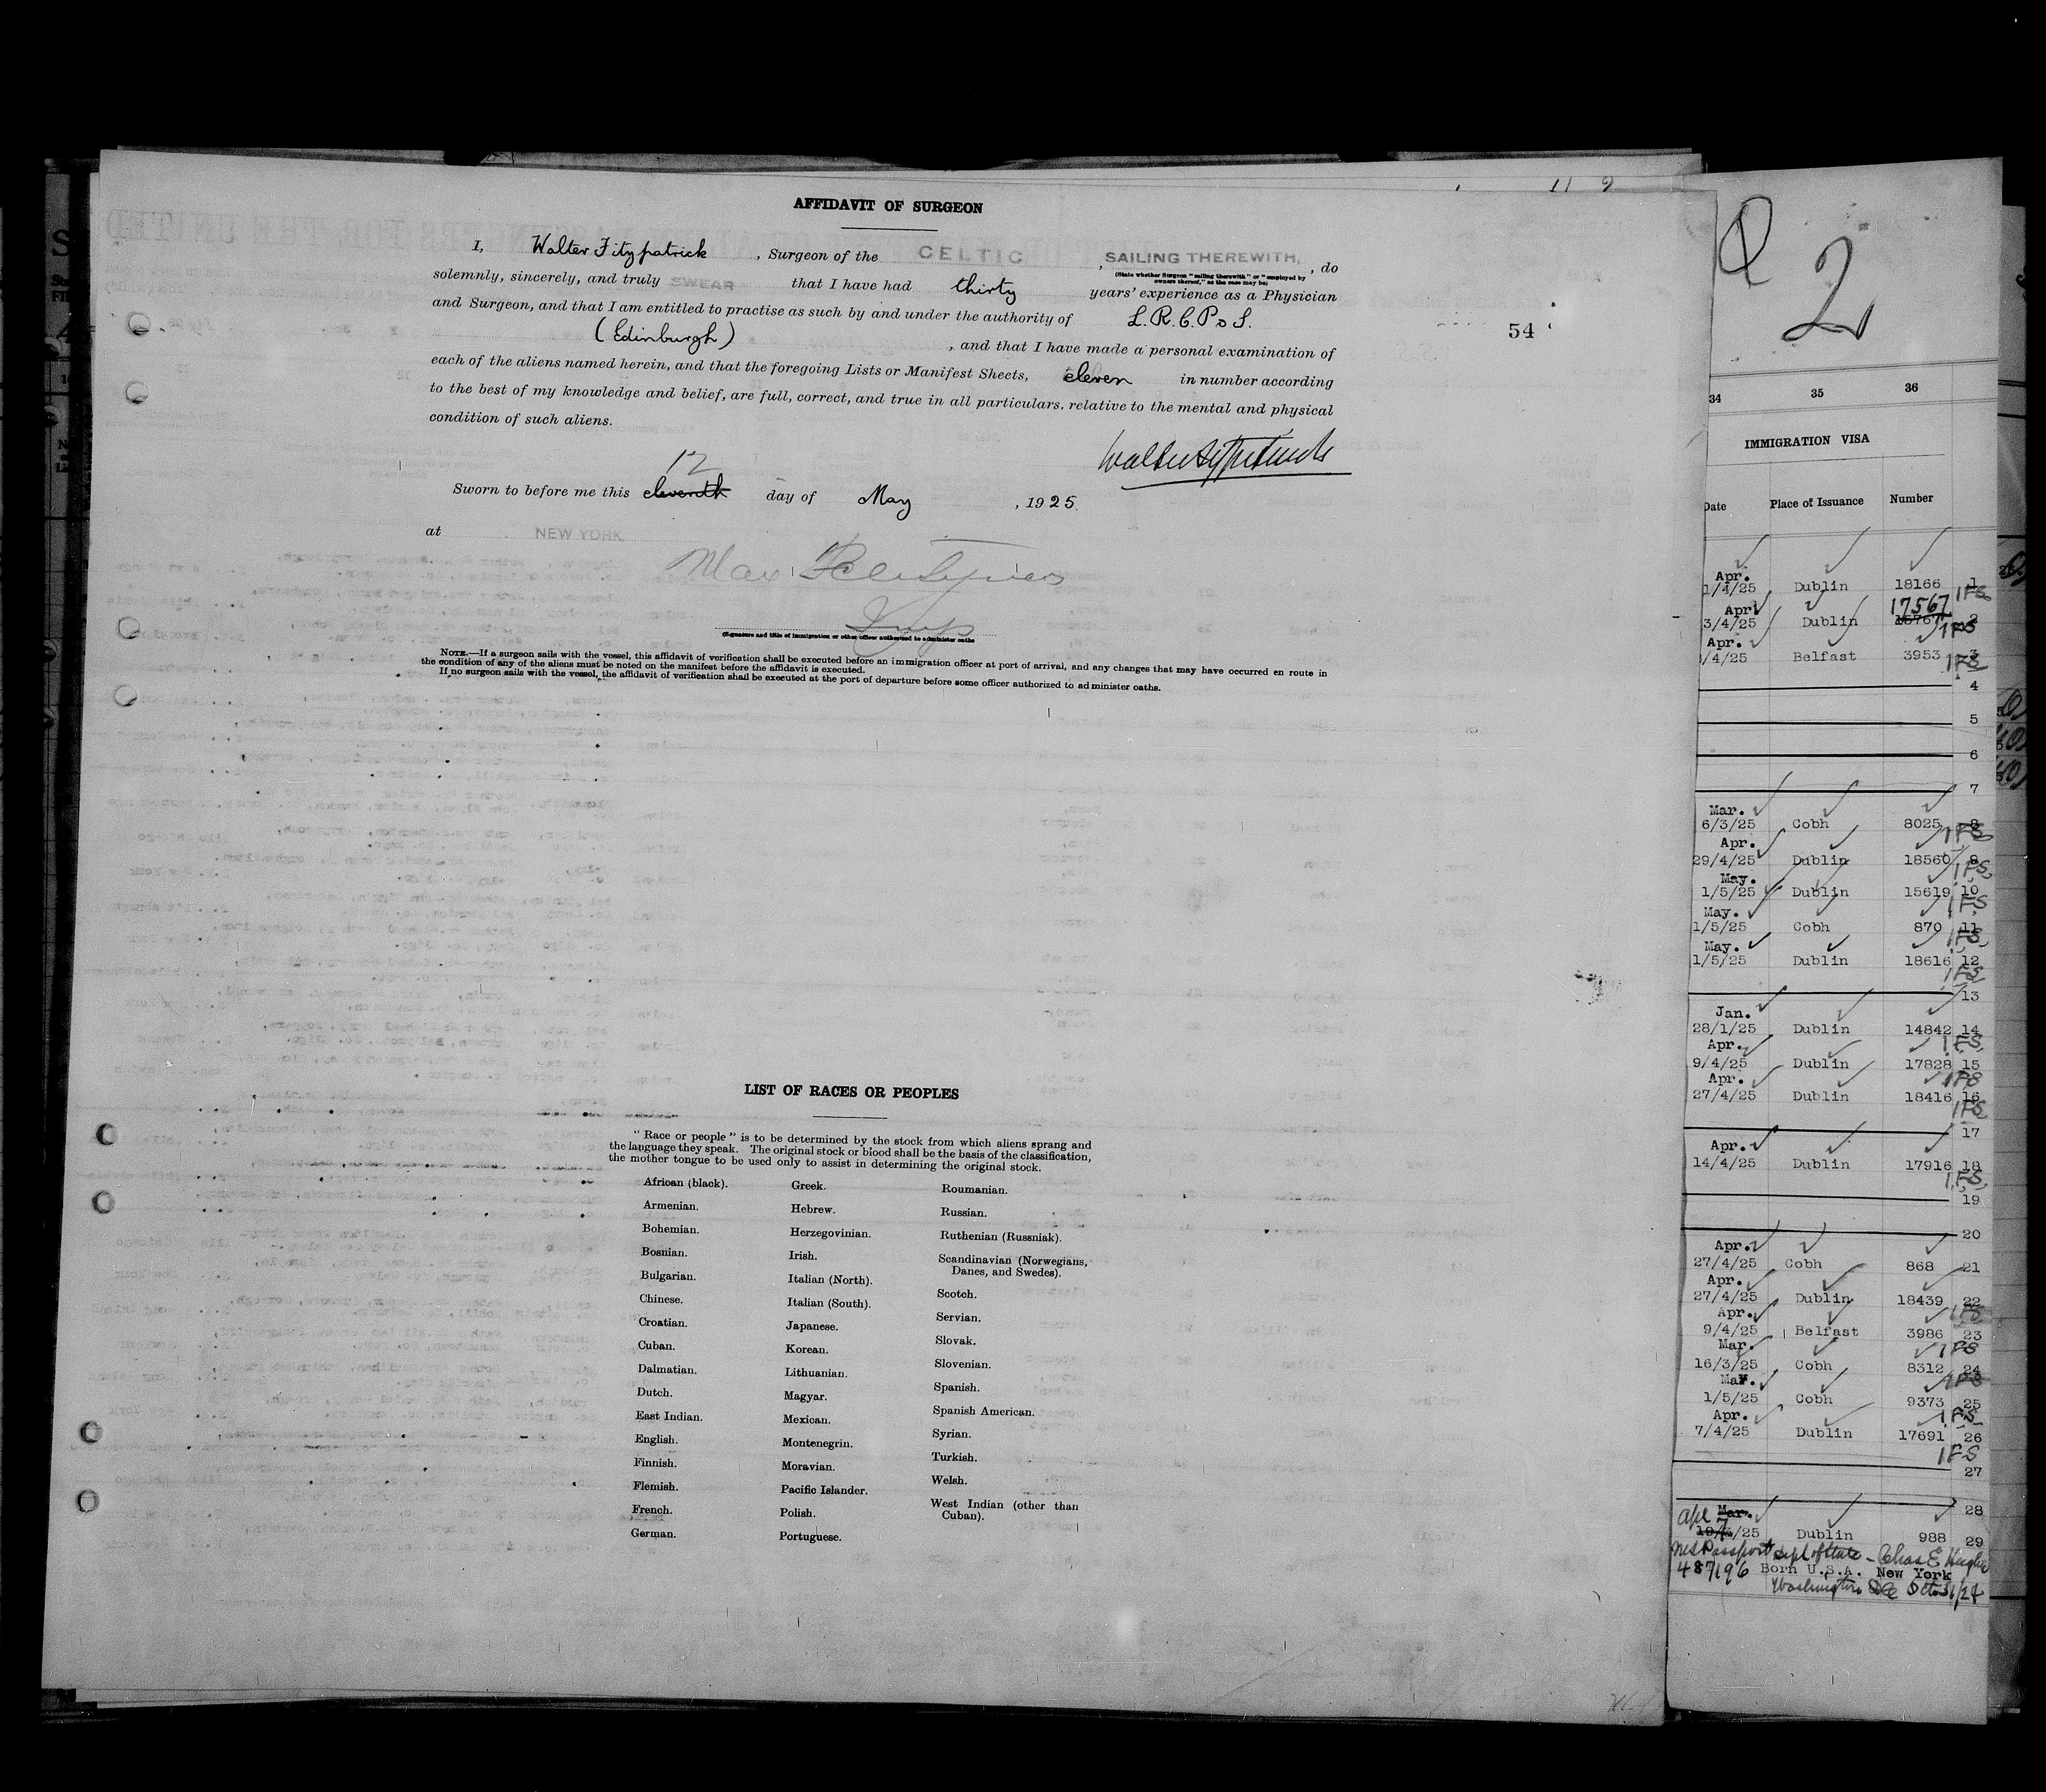 AFFIDAVIT OF SURGEON
I, Walter Fitzpatrick, Surgeon of the CELTIC, SAILING THEREWITH, do
(State whether Surgeon "sailing therewith" or "employed by
owners thereof," as the case may be)
solemnly, sincerely, and truly SWEAR that I have had thirty years' experience as a Physician
and Surgeon, and that I am entitled to practise as such by and under the authority of L.R.C.P. & S.
(Edinburgh), and that I have made a personal examination of
each of the aliens named herein, and that the foregoing Lists or Manifest Sheets, eleven in number according
to the best of my knowledge and belief, are full, correct, and true in all particulars, relative to the mental and physical
condition of such aliens.
Walter Fitzpatrick
12
Sworn to before me this eleventh day of May, 1925.
at NEW YORK
(Signature and title of immigration or other officer authorized to administer oaths
NOTE.—If a surgeon sails with the vessel, this affidavit of verification shall be executed before an immigration officer at port of arrival, and any changes that may have occurred en route in
the condition of any of the aliens must be noted on the manifest before the affidavit is executed.
If no surgeon sails with the vessel, the affidavit of verification shall be executed at the port of departure before some officer authorized to administer oaths.
54
LIST OF RACES OR PEOPLES
"Race or people" is to be determined by the stock from which aliens sprang and
the language they speak. The original stock or blood shall be the basis of the classification,
the mother tongue to be used only to assist in determining the original stock.
African (black).
Armenian.
Bohemian.
Bosnian.
Bulgarian.
Chinese.
Croatian.
Cuban.
Dalmatian.
Dutch.
East Indian.
English.
Finnish.
Flemish.
French.
German.
Greek.
Hebrew.
Herzegovinian.
Irish.
Italian (North).
Italian (South).
Japanese.
Korean.
Lithuanian.
Magyar.
Mexican.
Montenegrin.
Moravian.
Pacific Islander.
Polish.
Portuguese.
Roumanian.
Russian.
Ruthenian (Russniak).
Scandinavian (Norwegians,
Danes, and Swedes).
Scotch.
Servian.
Slovak.
Slovenian.
Spanish.
Spanish American.
Syrian.
Turkish.
Welsh.
West Indian (other than
Cuban).
2
34 35 36
IMMIGRATION VISA
Date Place of Issuance Number
Apr.
1/4/25 Dublin 18166 1
Apr 17567
3/4/25 Dublin 2
Apr.
/4/25 Belfast 3953 3
4
5
6
7
Mar.
6/3/25 Cobh 8025 8
Apr.
29/4/25 Dublin 18560 9
May.
1/5/25 Dublin 15619 10
May.
1/5/25 Cobh 870 11
May.
1/5/25 Dublin 18616 12
13
Jan.
28/1/25 Dublin 14842 14
Apr.
9/4/25 Dublin 17828 15
Apr.
27/4/25 Dublin 18416 16
17
Apr.
14/4/25 Dublin 17916 18
19
20
Apr.
27/4/25 Cobh 868 21
Apr.
27/4/25 Dublin 18439 22
Apr.
9/4/25 Belfast 3986 23
Mar.
16/3/25 Cobh 8312 24
May.
1/5/25 Cobh 9373 25
Apr.
7/4/25 Dublin 17691 26
27
28
Apl Mar.
/25 Dublin 988 29
Passport Dept of State - Chas E Hughes
487196 Born U.S.A. New York
Washington DC Oct 31/24